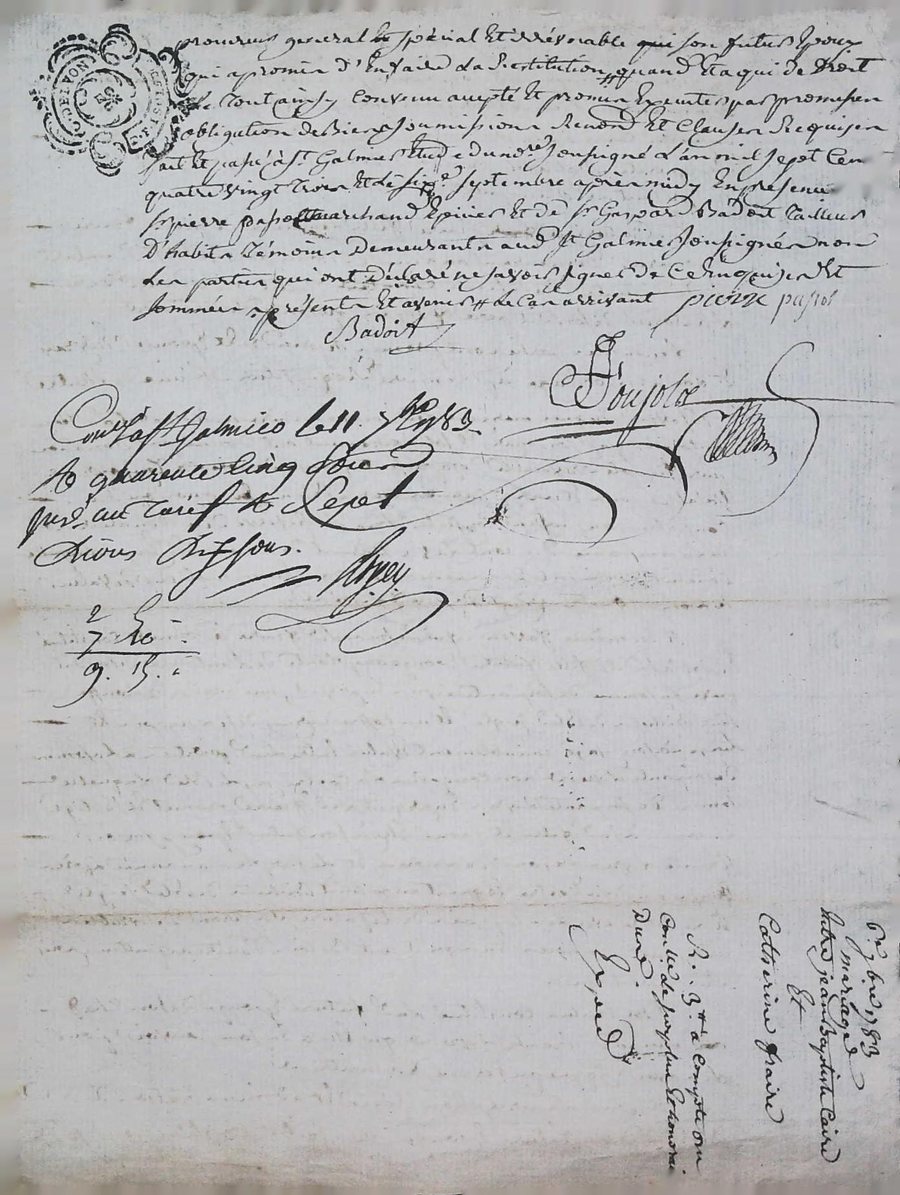 procureur general Et spécial Et irrévocable qui son futur Epoux
qui a promis d'En faire La restitution quand Et a qui de Droit
Le tout ainsy convenu accepté Et promis Executer par promesses
obligation de Biens soumissions Renond Et Clauses Requises
fait Et passé a St Galmier Etude du nore soussigné L'an mil sept Cen
quatre vingt trois Et Le six septembre après midy En presence
Sr pierre passot marchand Epicier Et de Sr Gaspard Badoit Tailleur
D'habits Témoins Demeurants aud St Galmier soussignés non
Les parties qui ont déclaré ne savoir signer de Ce Enquises Et
sommées a présent Et avenir Le Cas arrivant pierre passot
Badoit
Poujolas
Conllé a St Galmier le 11 7bre 1783
quarente Cinq
au tarif sept
Livres dix sous.
2
7. 10 .
9. 15. "
6e 7bre 1783
mariage
Entre jean Baptiste Caire
Et
Catherine fraire
R. 3tt a Compte
Conlle de papier Et honorai
Dud.
Exped